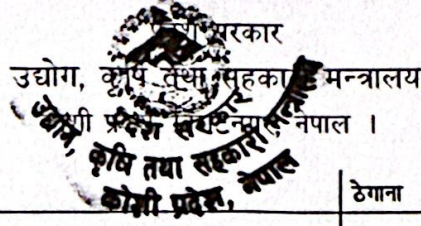 सरकार
उद्योग, कृषि तथा सहकारी मन्त्रालय
प्रदेश नेपाल ।
प्रदेश सरकार
उद्योग, कृषि तथा सहकारी मन्त्रालय
कोशी प्रदेश, नेपाल
ठेगाना